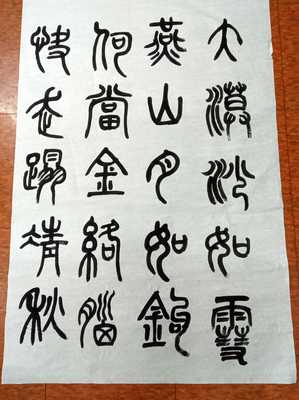 大漠沙如雪
燕山月如鉤
何當金絡腦
快走踢清秋